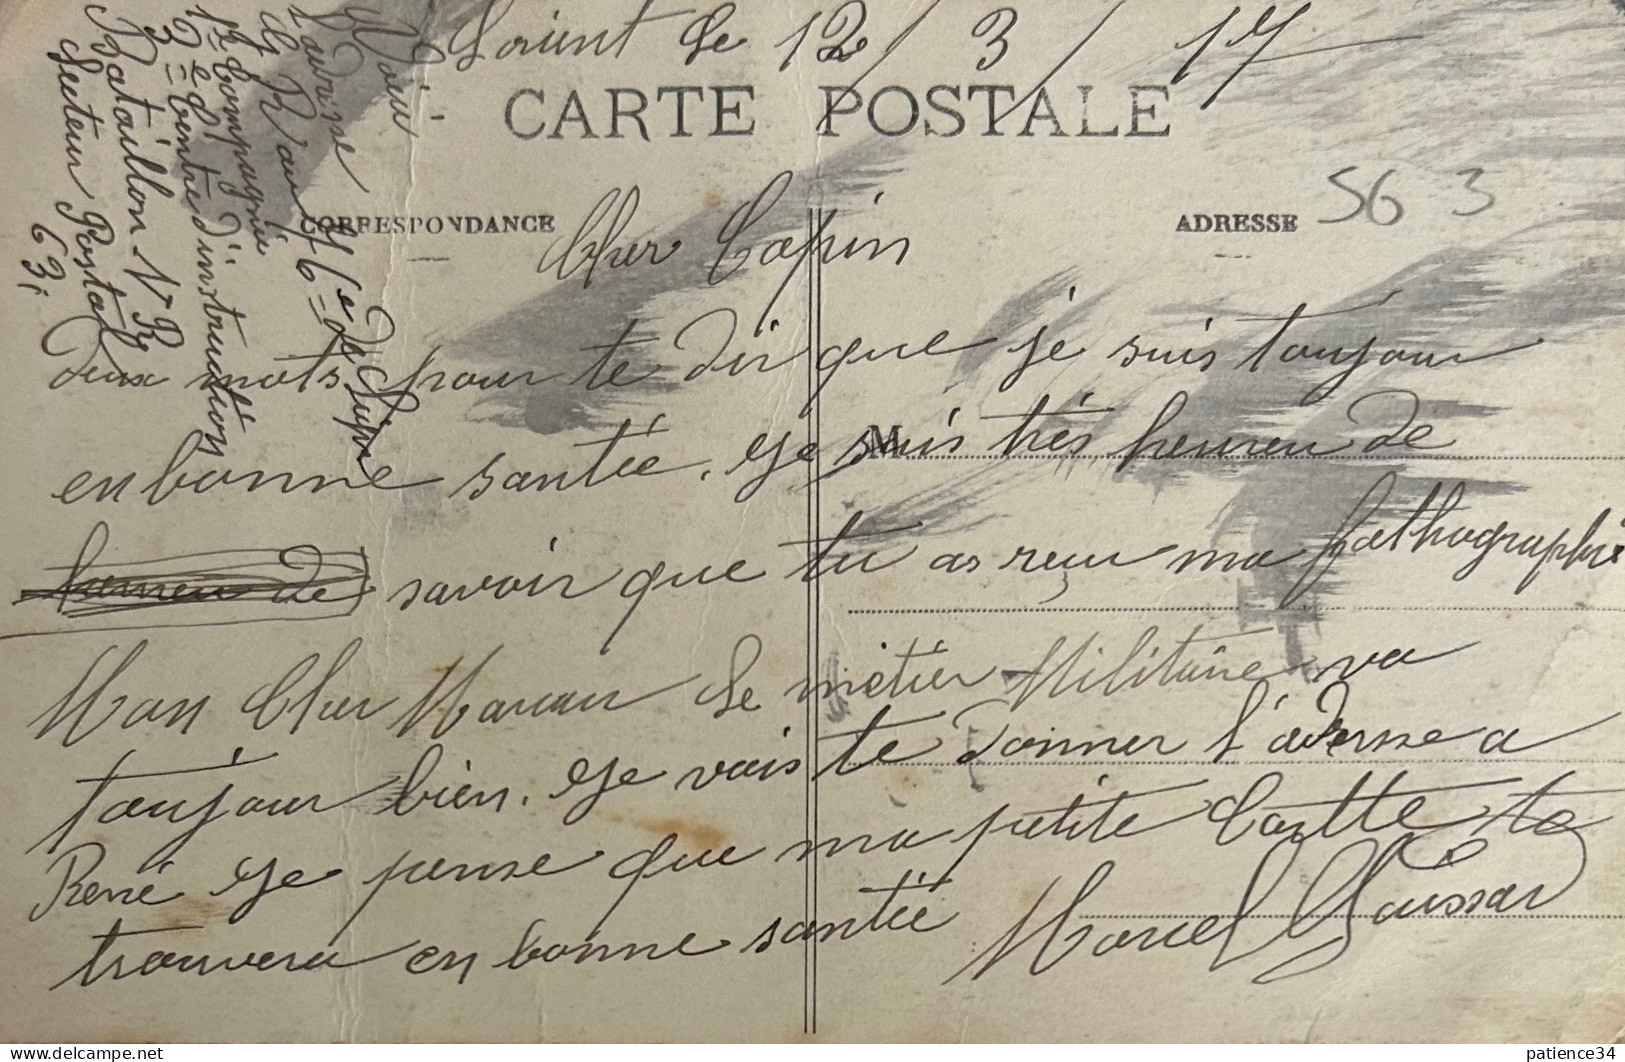 Lorient le 12/3/17
CARTE POSTALE
CORRESPONDANCE
ADRESSE
56 3
Cher Copin
deux mots pour te dir que je suis toujour
en bonne santée. Je suis très heureu de
savoir que tu as reçu ma
M
Mon Cher le métier Militaire va
toujour bien. Je vais te donner l'adresse a
René Je pense que ma petite Cartte te
trouvera en bonne santée Marcel
Voici
l'adrisse
1re Compagnie
d'instruction
Bataillon
Secteur Postal
63
patience34